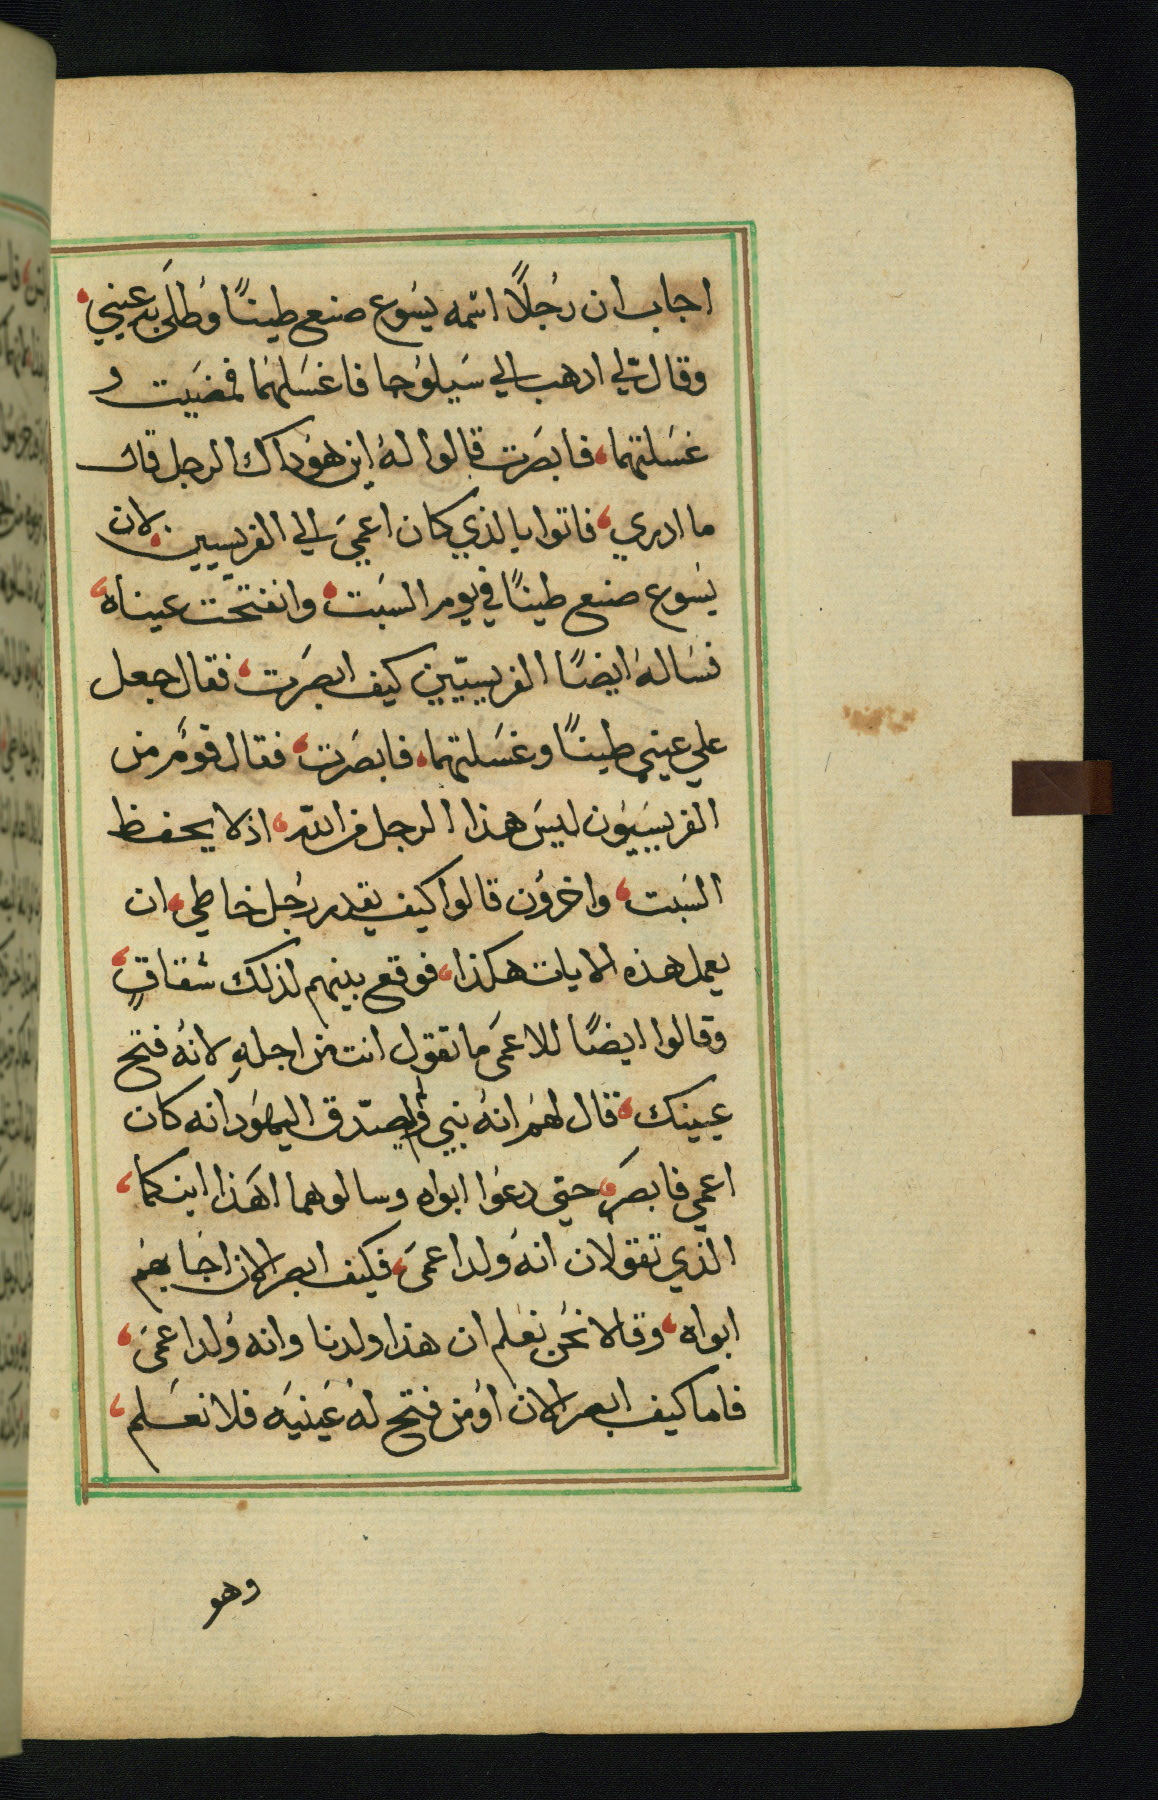 اجاب ان رُجلًا اسمه يسُوع صنع طينًا وُطلَي به عيني،
وقال لي ادهب الي سَيلوُحا فاغسَلهمَا فمضَيت و
غسَلتهما، فابصَرت قالوا لهُ اين هوُ داك الرجل قال
ما ادري، فاتوا بالذي كان اعميَ الي الفريسِيين، لان
يسُوع صنع طينًا في يوم السَبت، وانفتحَت عيناه،
فسَالهُ ايضًا الفريسيّين كيف ابصَرت، فقال جعل
علي عيني طينًا وغسَلتهما، فابصَرت، فقال قومٌ من
الفريسَيوُن ليسَ هذا الرجل من اللّه، اذ لا يحفظ
السَبت، واخروُن قالوا كيف يقدر رُجل خاطي، ان
يعمل هذه الايات هكذا، فوقع بينهم لذلك شقاقٍ،
وقالوا ايضًا للاعمَى ما تقول انت من اجلهِ لانهُ فتح
عينيك، قال لهمُ انهُ نبي ولم يصدّق اليهوُد انه كان
اعمي فابصرَ، حتي دعوُا ابواه وسالوهما اهَذا ابنكما،
الذي تقولان انهُ ولد اعمىَ، فكيف ابصر الان اجَابهمُ
ابواه، وقالا نحُن نعَلم ان هذا ولدنا وانه وُلد اعمىَ،
فاما كيف ابصر الان اوُ من فتح لهُ عَينيَه فلا نعَلم،
وهو